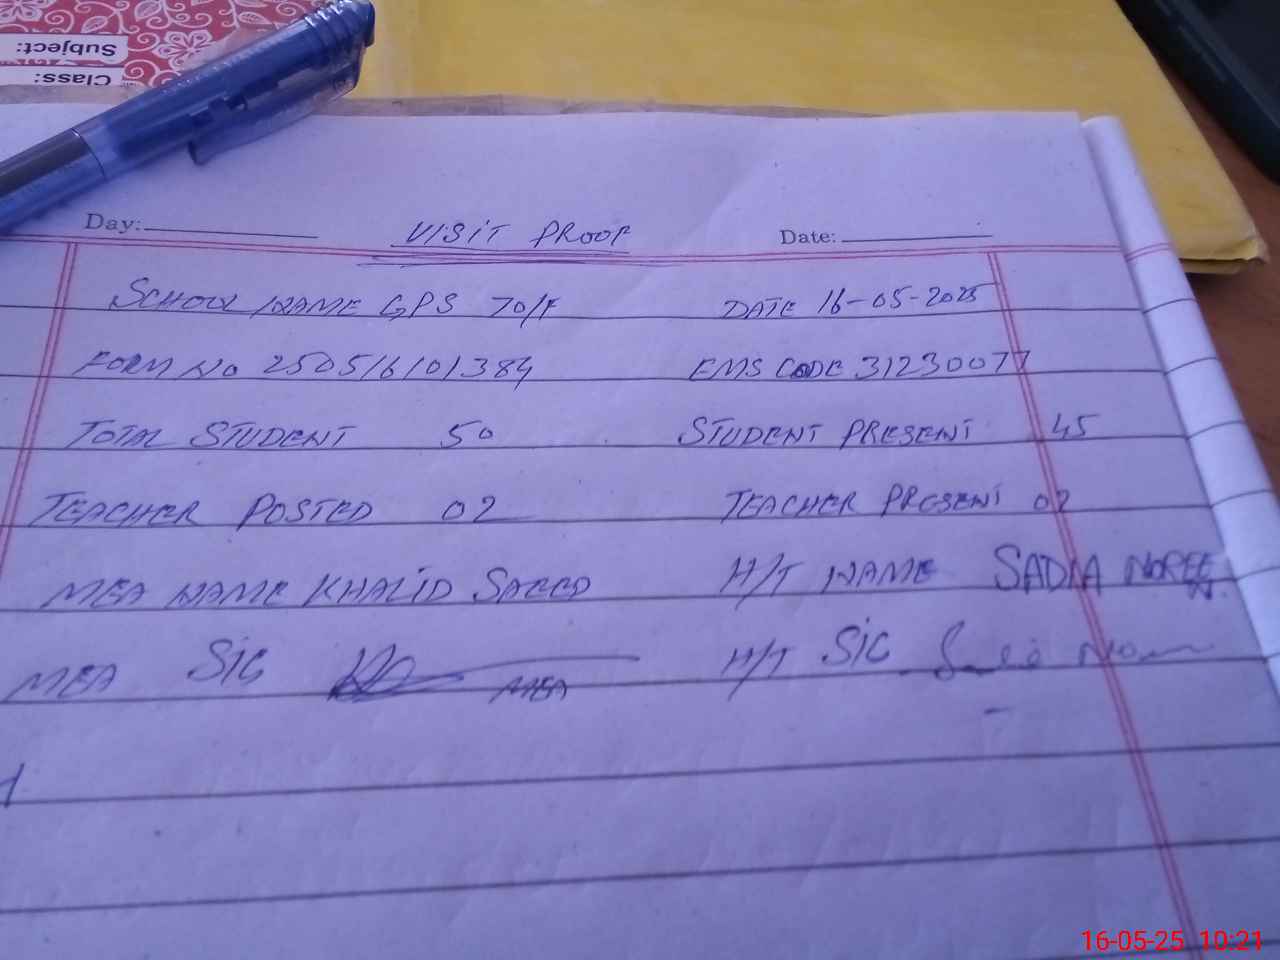 Subject:
Class:
Day: VISIT PROOF Date:
SCHOOL NAME GPS 70/F DATE 16-05-2025
FORM NO 250516101384 EMS CODE 31230077
TOTAL STUDENT 50 STUDENT PRESENT 45
TEACHER POSTED 02 TEACHER PRESENT 02
MEA NAME KHALID SAEED H/T NAME SADIA NOREEN.
MEA SIG MEA H/T SIG
16-05-25 10:21